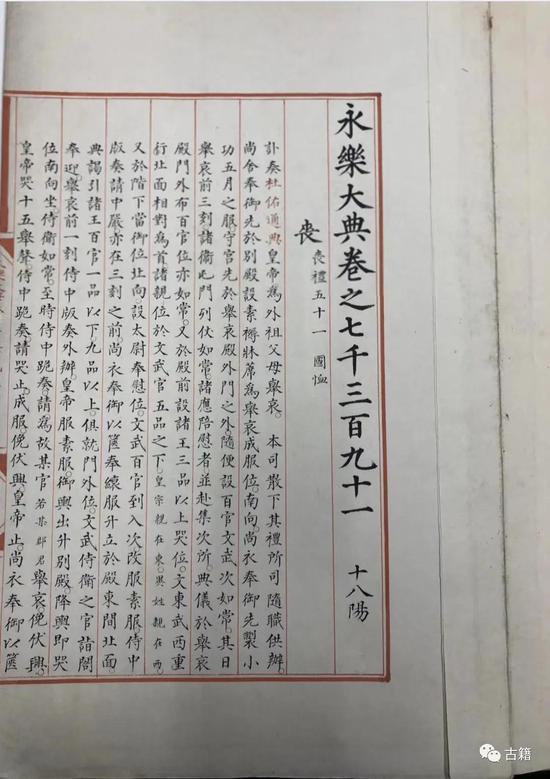 永樂大典卷之七千三百九十一 十八陽
喪 喪禮五十一 國恤
訃奏杜佑通典皇帝為外祖父母舉哀。本司散下其禮所司隨職供辦。
尚舍奉御先於別殿設素褥牀席為舉哀成服位。南向。尚衣奉御先製小
功五月之服。守宮先於舉哀殿外門之外隨便設百官文武次如常。其日
舉哀前三刻諸衛屯門列仗如常。諸應陪慰者並赴集次所。典儀於舉哀
殿門外布百官位亦如常。又於殿前設諸王三品以上哭位。文東武西重
行北面相對為首諸親位於文武官五品之下。皇宗親在東。異姓親在西。
又於階下當御位北向設太尉奉慰位。文武百官到入次改服素服侍中
版奏請中嚴亦在三刻之前。尚衣奉御以篋奉縗服升立於殿東間北面。
典謁引諸王百官一品以下九品以上。俱就門外位。文武侍衛之官詣閤
奉迎舉哀前一刻侍中版奏外辦。皇帝服素服御輿出升別殿。降輿即哭
位南向坐侍衛如常。至時侍中跪奏。請為故某官 若某郡君 舉哀俛伏興。
皇帝哭十五舉聲侍中跪奏。請哭止。成服俛伏興皇帝止。尚衣奉御以篋
古籍